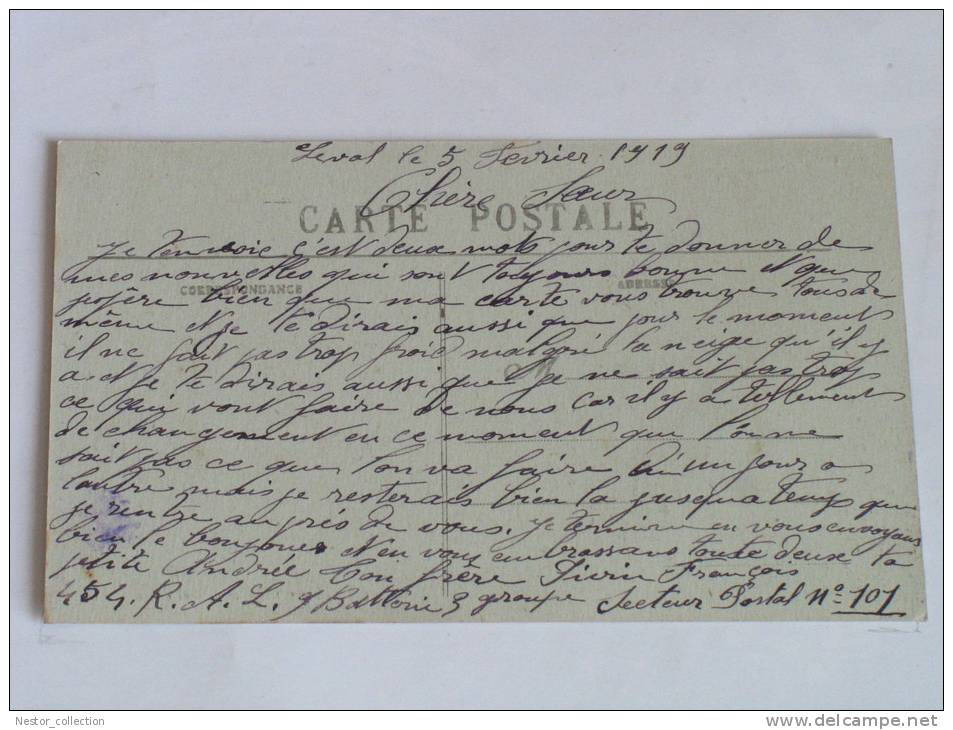 Leval le 5 Fevrier 1919
Chère Sœur
CARTE POSTALE
Je t'envoie c'est deux mots pour te donner de
mes nouvelles qui sont toujours bonne et que
CORRESPONDANCE
ADRESSE
j'espère bien que ma carte vous trouve tous de
même et je te dirais aussi que pour le moment
il ne fait pas trop froid malgré la neige qu'il y
a et je te dirais aussi que je ne sait pas trop
ce qui vont faire de nous car il y a tellement
de changement en ce moment que l'on ne
sait pas ce que l'on va faire d'un jour a
l'autre mais je resterais bien la jusqua temps que
je rentre au près de vous. Je termine en vous envoyans
bien le bonjour et en vous enbrassans toute deux ta
petite Andrée Ton frère François
454. R. A. L. 9 Batterie 3 groupe Secteur Postal No 101
Nestor_collection
www.delcampe.net